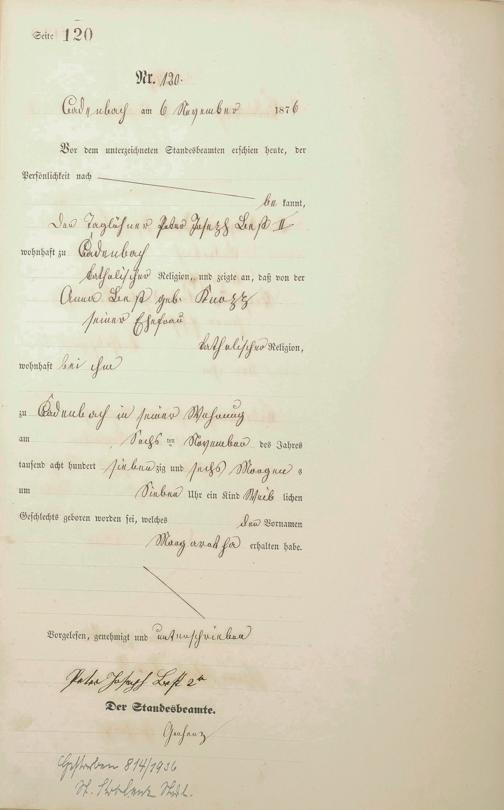 Seite 120
Nr. 120.
Cadenbach am 6 November 1876
Vor dem unterzeichneten Standesbeamten erschien heute, der
Persönlichkeit nach
be kannt,
Der Taglöhner Peter Joseph Best II
wohnhaft zu Cadenbach
katholischer Religion, und zeigte an, daß von der
Anna Best geb. Knopp
seiner Ehefrau
katholischer Religion,
wohnhaft bei ihm
zu Cadenbach in seiner Wohnung
am Sechs ten November des Jahres
tausend acht hundert siebenzig und sechs Morgens
um Sieben Uhr ein Kind Weib lichen
Geschlechts geboren worden sei, welches den Vornamen
Margaretha erhalten habe.
Vorgelesen, genehmigt und unterschrieben
Peter Joseph Best 2r
Der Standesbeamte.
Gestorben 814/1936
St.